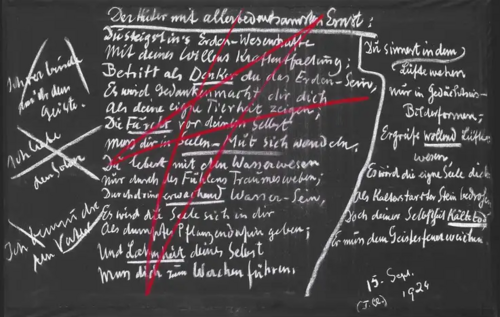 Der Hüter mit allerbedeutsamstem Ernst:
Du steigst in's Erden-Wesenhafte
Mit deines Willens Kraftentfaltung;
Betritt als Denker du das Erden-Sein,
Es wird Gedankenmacht dir dich
Als deine eigne Tierheit zeigen;
Die Furcht vor deinem Selbst
muss dir in Seelen-Mut sich wandeln.
Du lebest mit dem Wasserwesen
nur durch des Fühlens Traumesweben;
Durchdring erwachend Wasser-Sein,
Es wird die Seele sich in dir
Als dumpfes Pflanzendasein geben;
Und Lahmheit deines Selbst
Muss dich zum Wachen führen.
Du sinnest in dem
Lüftewehen
nur in Gedächtnis-
Bilderformen;
Ergreife wollend Lüfte
wesen
Es wird die eigne Seele dich
Als kalterstarrter Stein bedrohn
Doch deiner Selbstheit Kältetod
Er muss dem Geistesfeuer weichen.
Ich
binde
Geiste.
Ich
dem
Ich
15. Sept.
1924